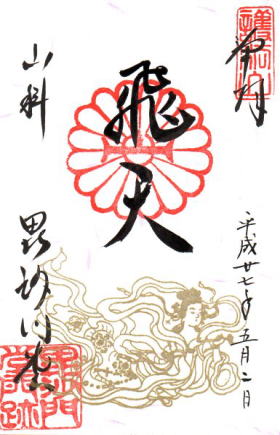 護法山
奉拝
平成廿七年五月二日
飛天
山科
毘沙門堂